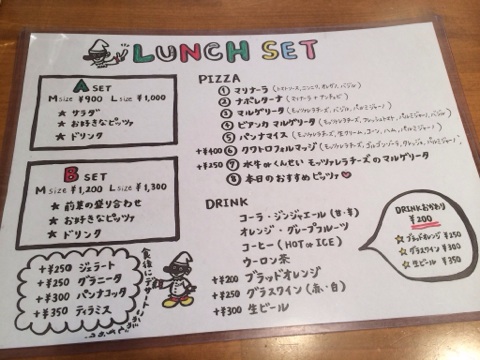 LUNCH SET
A SET
M size ¥900 L size ¥1,000
★ サラダ
★ お好きなピッツァ
★ ドリンク
B SET
M size ¥1,200 L size ¥1,300
★ 前菜の盛り合わせ
★ お好きなピッツァ
★ ドリンク
食後にデザート
+¥250 ジェラート
+¥250 グラニータ
+¥300 パンナコッタ
+¥350 ティラミス
PIZZA
① マリナーラ (トマトソース、ニンニク、オレガノ、バジル)
② ナポレターナ (マリナーラ+アンチョビ)
③ マルゲリータ (モッツァレラチーズ、バジル、パルミジャーノ)
④ ビアンカ マルゲリータ (モッツァレラチーズ、フレッシュトマト、バジル、パルミジャーノ)
⑤ パンナマイス (モッツァレラチーズ、生クリーム、コーン、ハム、パルミジャーノ)
+¥400 ⑥ クワトロフォルマッジ (モッツァレラチーズ、ゴルゴンゾーラ、タレッジョ、パルミジャーノ)
+¥250 ⑦ 水牛のくんせい モッツァレラチーズのマルゲリータ
⑧ 本日のおすすめピッツァ
DRINK
コーラ・ジンジャエール (甘・辛)
オレンジ・グレープフルーツ
コーヒー (HOT or ICE)
ウーロン茶
+¥200 ブラッドオレンジ
+¥250 グラスワイン (赤・白)
+¥300 生ビール
DRINKおかわり
¥200
☆ブラッドオレンジ ¥250
☆グラスワイン ¥300
☆生ビール ¥350